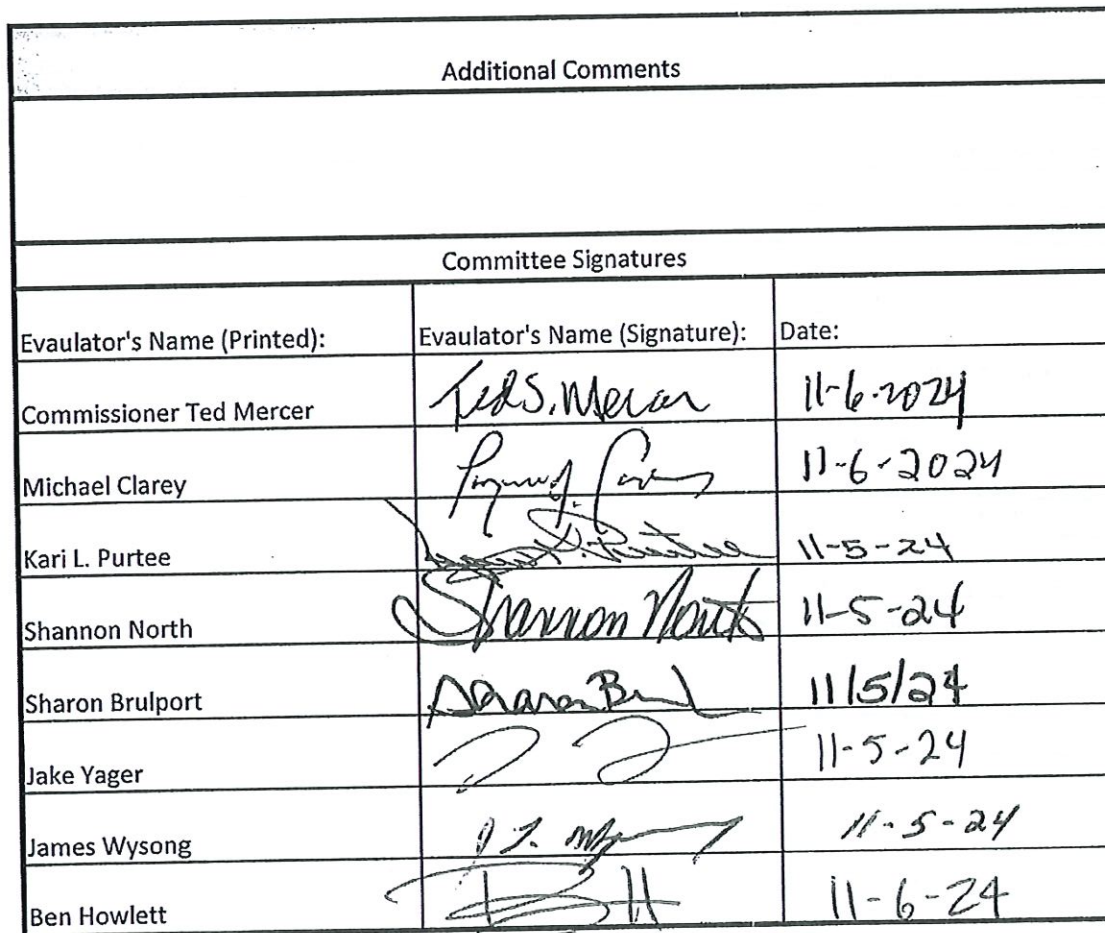 Additional Comments
Committee Signatures
Evaulator's Name (Printed): Evaulator's Name (Signature): Date:
Commissioner Ted Mercer Ted S. Mercer 11-6-2024
Michael Clarey 11-6-2024
Kari L. Purtee L. Purtee 11-5-24
Shannon North Shannon North 11-5-24
Sharon Brulport Sharon 11/5/24
Jake Yager 11-5-24
James Wysong 11-5-24
Ben Howlett 11-6-24